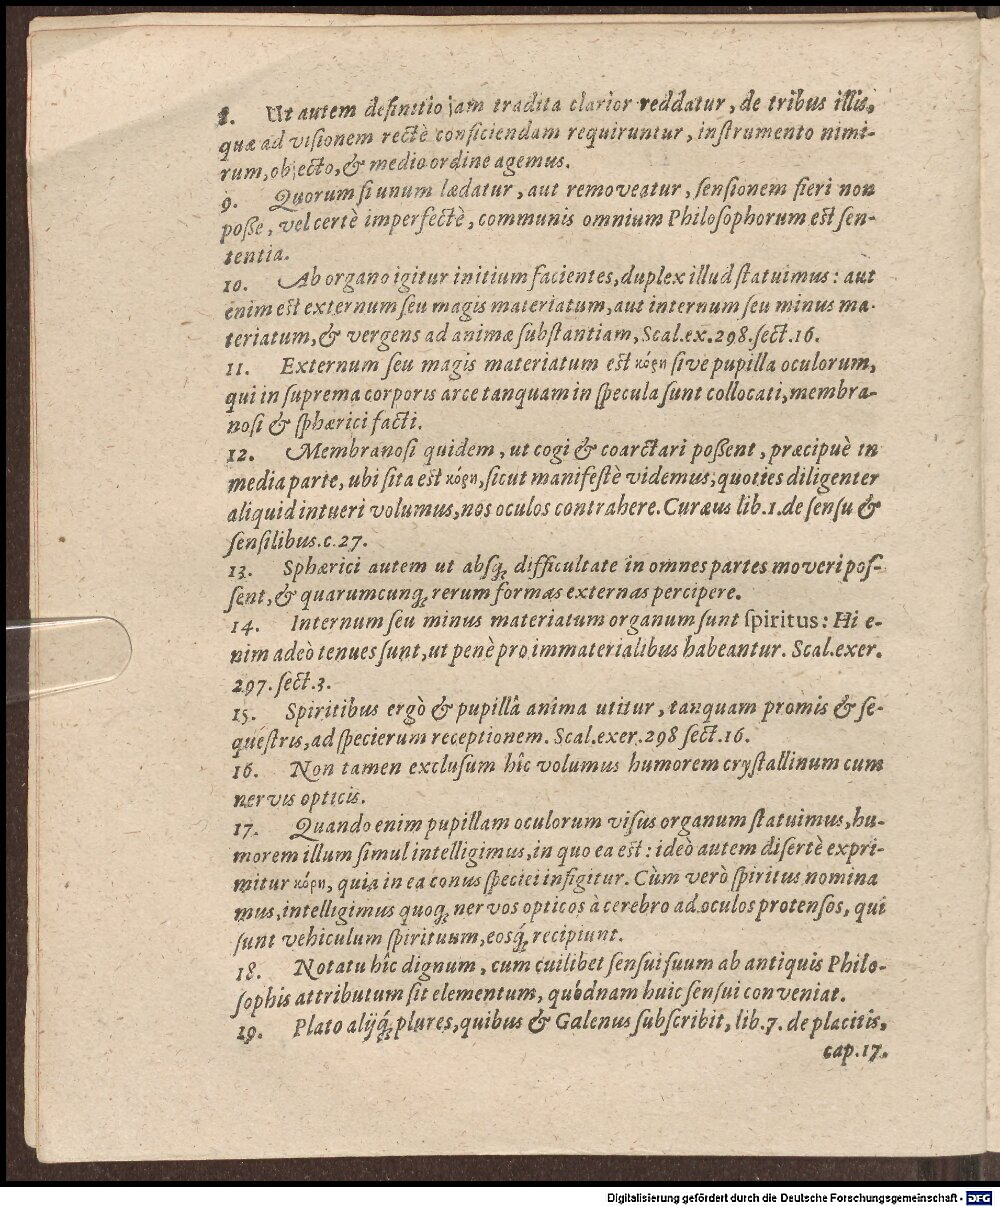 8. Ut autem definitio jam tradita clarior reddatur, de tribus illis,
quæ ad visionem rectè conficiendam requiruntur, instrumento nimi-
rum, objecto, & medio ordine agemus.
9. Quorum si unum lædatur, aut removeatur, sensionem fieri non
posse, vel certè imperfectè, communis omnium Philosophorum est sen-
tentia.
10. Ab organo igitur initium facientes, duplex illud statuimus: aut
enim est externum seu magis materiatum, aut internum seu minus ma-
teriatum, & vergens ad animæ substantiam, Scal.ex.298.sect.16.
11. Externum seu magis materiatum est κόρη sive pupilla oculorum,
qui in suprema corporis arce tanquam in specula sunt collocati, membra-
nosi & sphærici facti.
12. Membranosi quidem, ut cogi & coarctari possent, præcipuè in
media parte, ubi sita est κόρη, sicut manifestè videmus, quoties diligenter
aliquid intueri volumus, nos oculos contrahere. Curæus lib.1.de sensu &
sensilibus.c.27.
13. Sphærici autem ut absq; difficultate in omnes partes moveri pos-
sent, & quarumcunq; rerum formas externas percipere.
14. Internum seu minus materiatum organum sunt spiritus: Hi e-
nim adeò tenues sunt, ut penè pro immaterialibus habeantur. Scal.exer.
297. sect.3.
15. Spiritibus ergò & pupillâ anima utitur, tanquam promis & se-
questris, ad specierum receptionem. Scal.exer.298 sect.16.
16. Non tamen exclusum hîc volumus humorem crystallinum cum
nervis opticis.
17. Quando enim pupillam oculorum visus organum statuimus, hu-
morem illum simul intelligimus, in quo ea est: ideò autem disertè expri-
mitur κόρη, quia in ea conus speciei infigitur. Cùm verò spiritus nomina
mus, intelligimus quoq; nervos opticos à cerebro ad oculos protensos, qui
sunt vehiculum spirituum, eosq́; recipiunt.
18. Notatu hîc dignum, cum cuilibet sensui suum ab antiquis Philo-
sophis attributum sit elementum, quódnam huic sensui conveniat.
19. Plato alijq́; plures, quibus & Galenus subscribit, lib.7. de placitis,
cap.17.
Digitalisierung gefördert durch die Deutsche Forschungsgemeinschaft - DFG